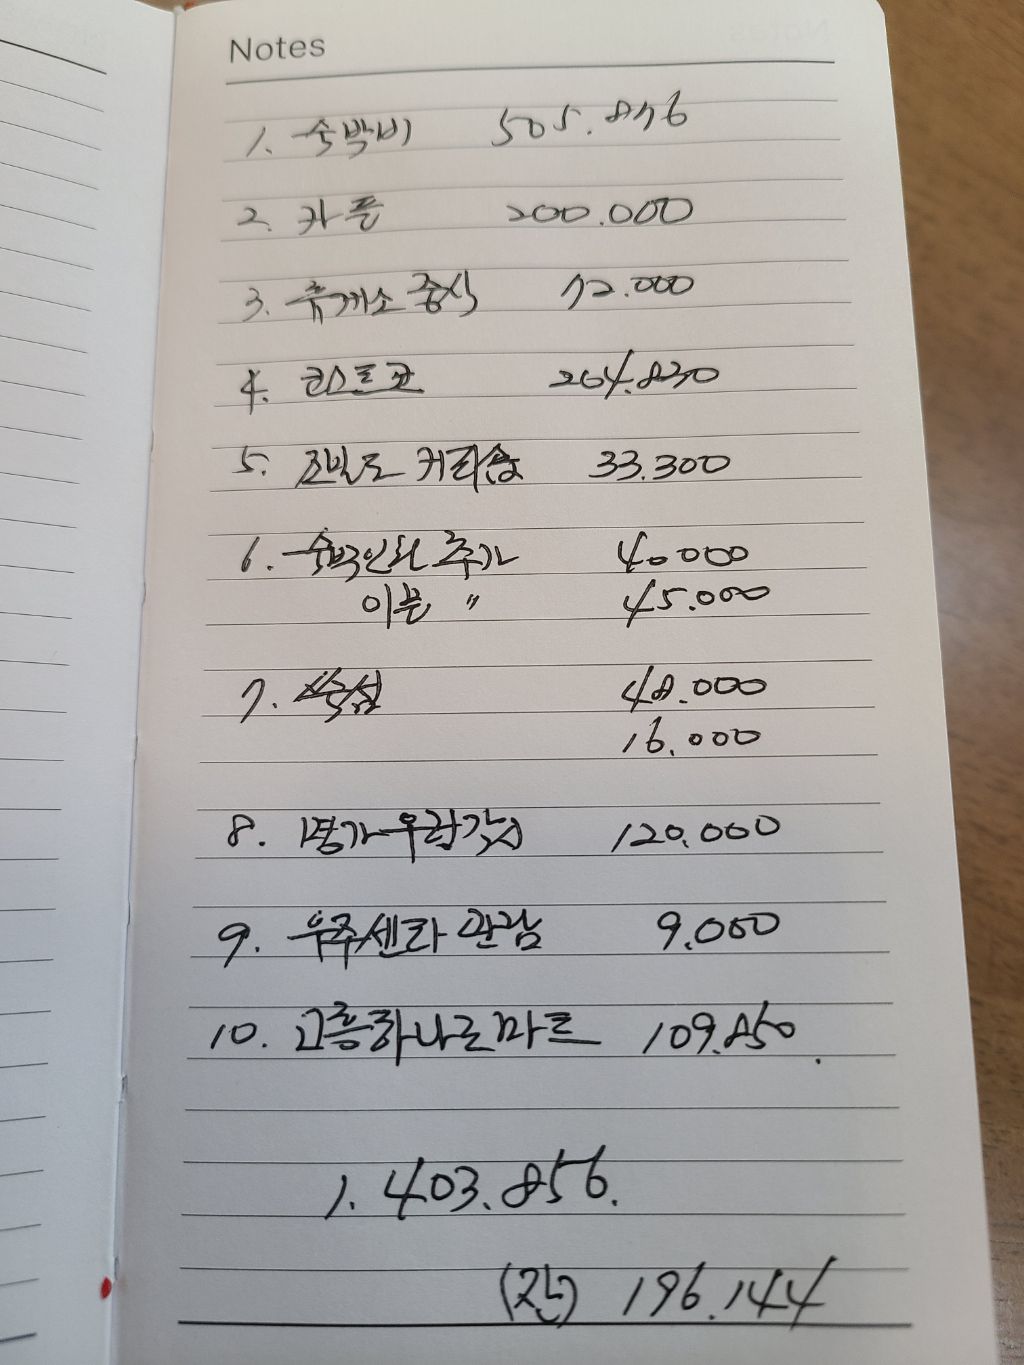 Notes
1. 숙박비 505.876
2. 카풀 200.000
3. 휴게소 중식 72.000
4. 코스트코 204.830
5. 커피숍 33.300
6. 숙박인원 추가 40000
이불 〃 45.000
7. 쑥섬 48.000
16.000
8. 명가우렁각시 120.000
9. 우주센타 관람 9.000
10. 고흥하나로마트 109.850.
1.403.856.
(잔) 196.144